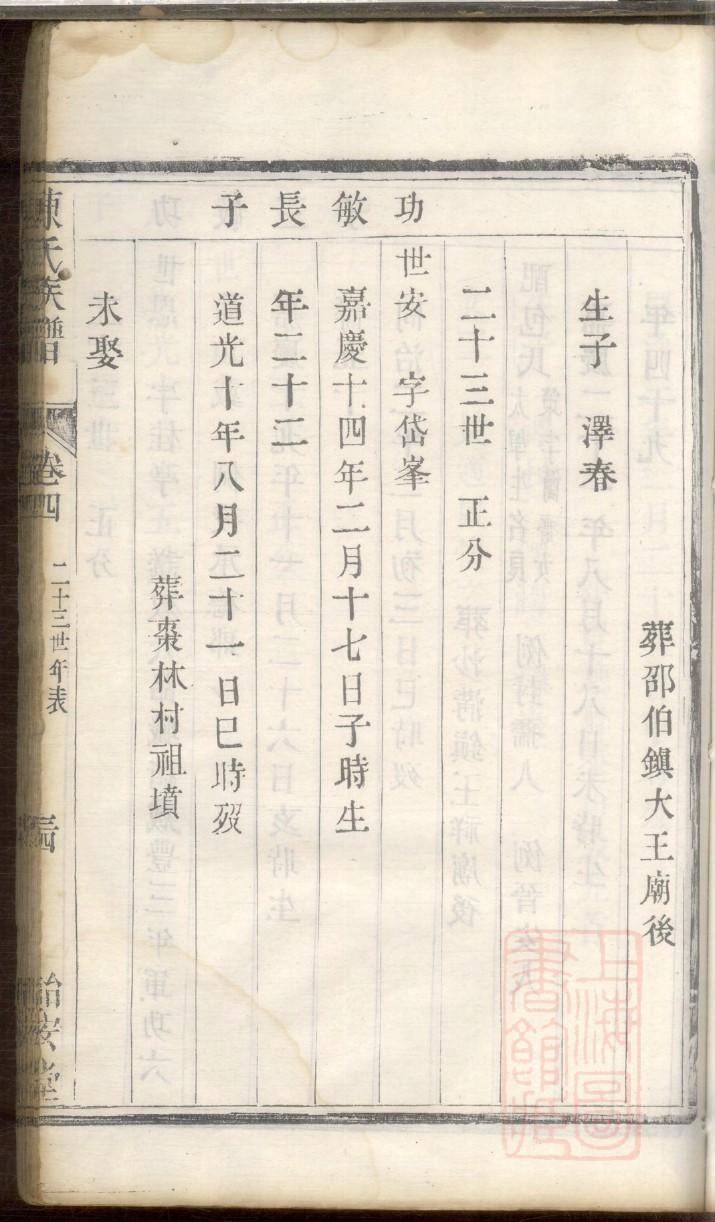 葬邵伯鎮大王廟後
生子 澤春
二十三世 正分
功敏長子
世安 字岱峯
嘉慶十四年二月十七日子時生
年二十二
道光十年八月二十一日巳時歿
葬棗林村祖墳
未娶
陳氏族譜 卷四 二十三世年表
上海圖書館藏